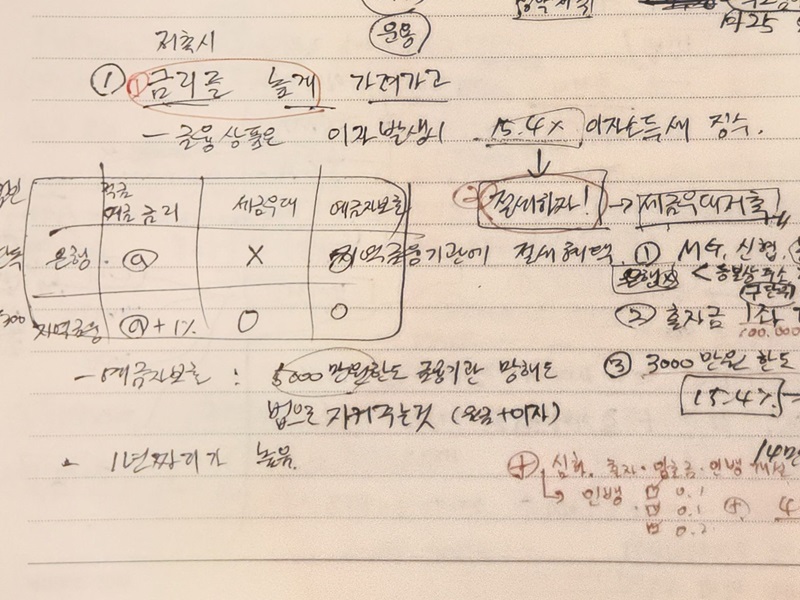 운용
마25
저축시
① ① 금리를 높게 가져가고
- 금융상품은 이자 발생시 15.4% 이자소득세 징수.
② 절세하자! → 세금우대저축
적금 예금 금리 세금우대 예금자보호
은행 ⓐ X
지역금융기관에 절세혜택. ① MG, 신협,
지역금융 ⓐ+1% O O
< 등본상 주소
② 출자금 1좌
100,000
- 예금자보호 : 5000만원한도 금융기관 망해도
③ 3000만원 한도
법으로 지켜주는것 (원금+이자)
15.4% →
- 1년짜리가 높음.
⊕ 심화. 출자·입출금·인뱅 개설
↳ 인뱅 0.1
0.1 ⊕ 4
0.2